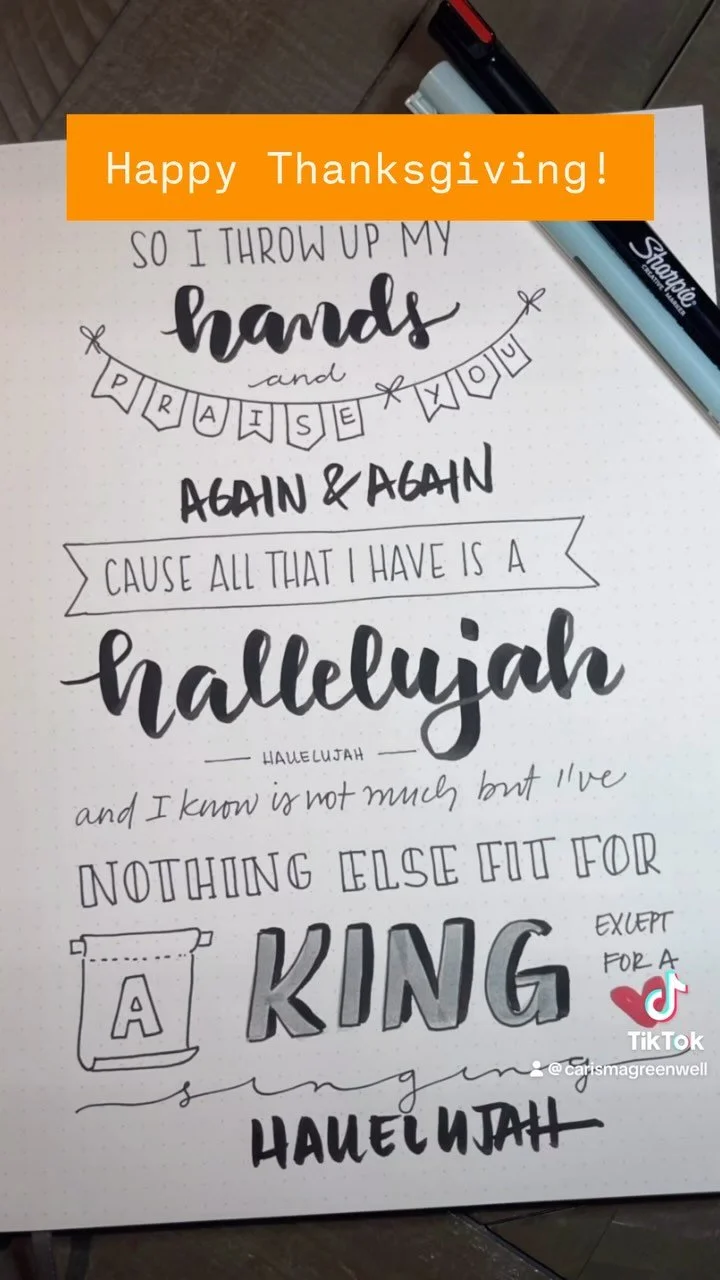 Happy Thanksgiving!
SO I THROW UP MY
hands
and
PRAISE YOU
AGAIN & AGAIN
CAUSE ALL THAT I HAVE IS A
hallelujah
HALLELUJAH
and I know is not much but I've
NOTHING ELSE FIT FOR
A KING
EXCEPT
FOR A
singing
HALLELUJAH
Sharpie
CREATIVE MARKER
TikTok
@carismagreenwell